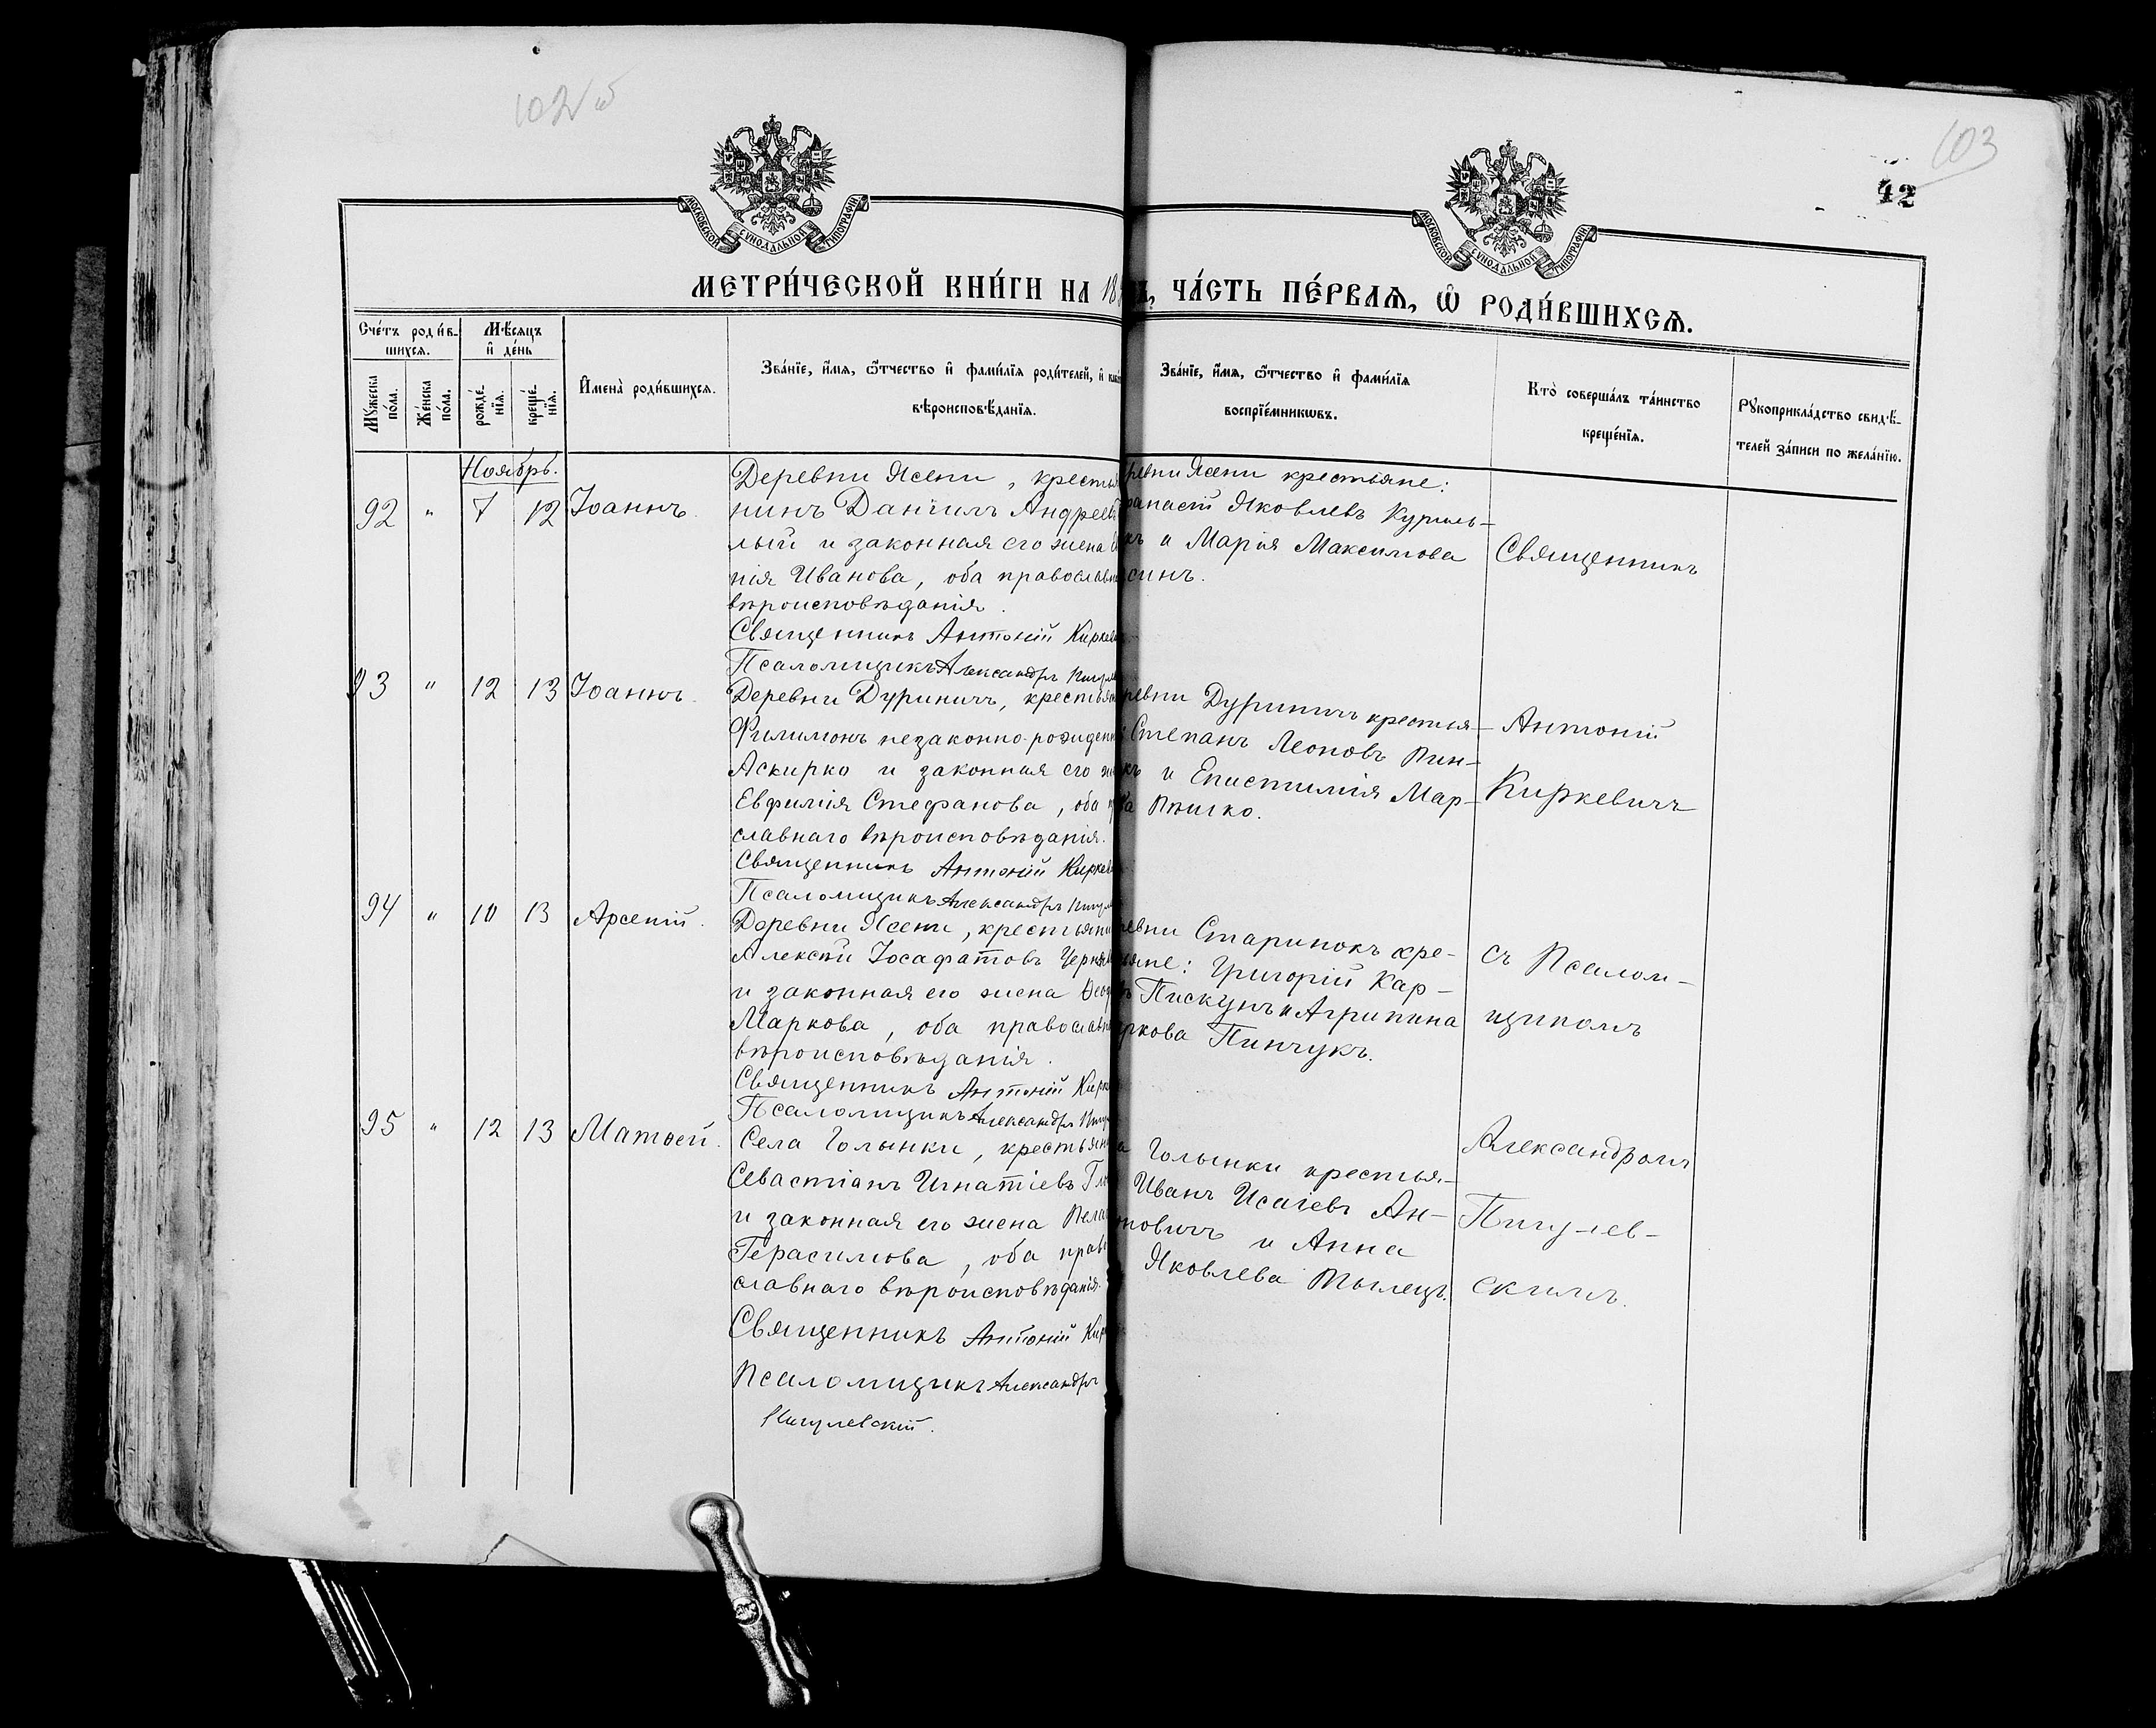 103
42
МОСКОВСКОЙ СѴНОДАЛЬНОЙ ТИПОГРАФІИ
МОСКОВСКОЙ СѴНОДАЛЬНОЙ ТИПОГРАФІИ
МЕТРИ́ЧЕСКОЙ КНИ́ГИ НА 18
ЧА́СТЬ ПЕ́РВАѦ, Ѿ РОДИ́ВШИХСѦ.
Сче́тъ роди́в-
шихсѧ.
Мѣ́сѧцъ
и҆ де́нь
Мꙋ́жеска
по́ла.
Же́нска
по́ла.
рожде́-
нїѧ.
креще́-
нїѧ.
И҆мена̀ роди́вшихсѧ.
Зва́нїе, и҆́мѧ, ѻ҆́тчество и҆ фамⷤи́лїѧ роди́телей, и҆
вѣроисповѣ́данїѧ.
Зва́нїе, и҆́мѧ, ѻ҆́тчество и҆ фами́лїѧ
воспрїе́мникѡвъ.
Кто̀ соверша́лъ та́инство
креще́нїѧ.
Рꙋкоприкла́дство свидѣ́-
телей за́писи по жела́нїю.
Ноябрь.
92 " 7 12 Іоаннъ.
Деревни Ясени, крестья
нинъ Даніилъ Андреевъ
лый и законная его жена
нія Иванова, оба православн
вѣроисповѣданія.
Священникъ Антоній Киркев
Псаломщикъ Александръ Пигулев
ревни Ясени крестьяне:
анасій Яковлевъ Куриль-
къ и Марія Максимова
синъ.
93 " 12 13 Іоаннъ.
Деревни Дуриничъ, крестьян
Филимонъ незаконно-рожденн
Аскирко и законная его ж
Евфимія Стефанова, оба п
славнаго вѣроисповѣданія.
Священникъ Антоній Киркев
Псаломщикъ Александръ Пигул
ревни Дуриничъ крестья-
Степанъ Леоновъ Пин-
къ и Епистимія Мар-
ва Пѣшко.
94 " 10 13 Арсеній.
Деревни Ясени, крестьянин
Алексѣй Іосафатовъ Черня
и законная его жена Ѳеод
Маркова, оба православн
вѣроисповѣданія.
Священникъ Антоній Кирк
Псаломщикъ Александръ Пигу
ревни Старинокъ кре-
яне: Григорій Кар-
ъ Пискунъ и Агрипина
ркова Пинчукъ.
95 " 12 13 Матѳей.
Села Голынки, крестьян
Севастіанъ Игнатіевъ Гл
и законная его жена Пелаг
Герасимова, оба право
славнаго вѣроисповѣданія.
Священникъ Антоній Кирк
Псаломщикъ Александръ
Пигулевскій.
а Голынки крестья-
Иванъ Исаіевъ Ан-
новичъ и Анна
Яковлева Тылецъ.
Священникъ
Антоній
Киркевичъ
съ Псалом-
щикомъ
Александромъ
Пигулев-
скимъ.